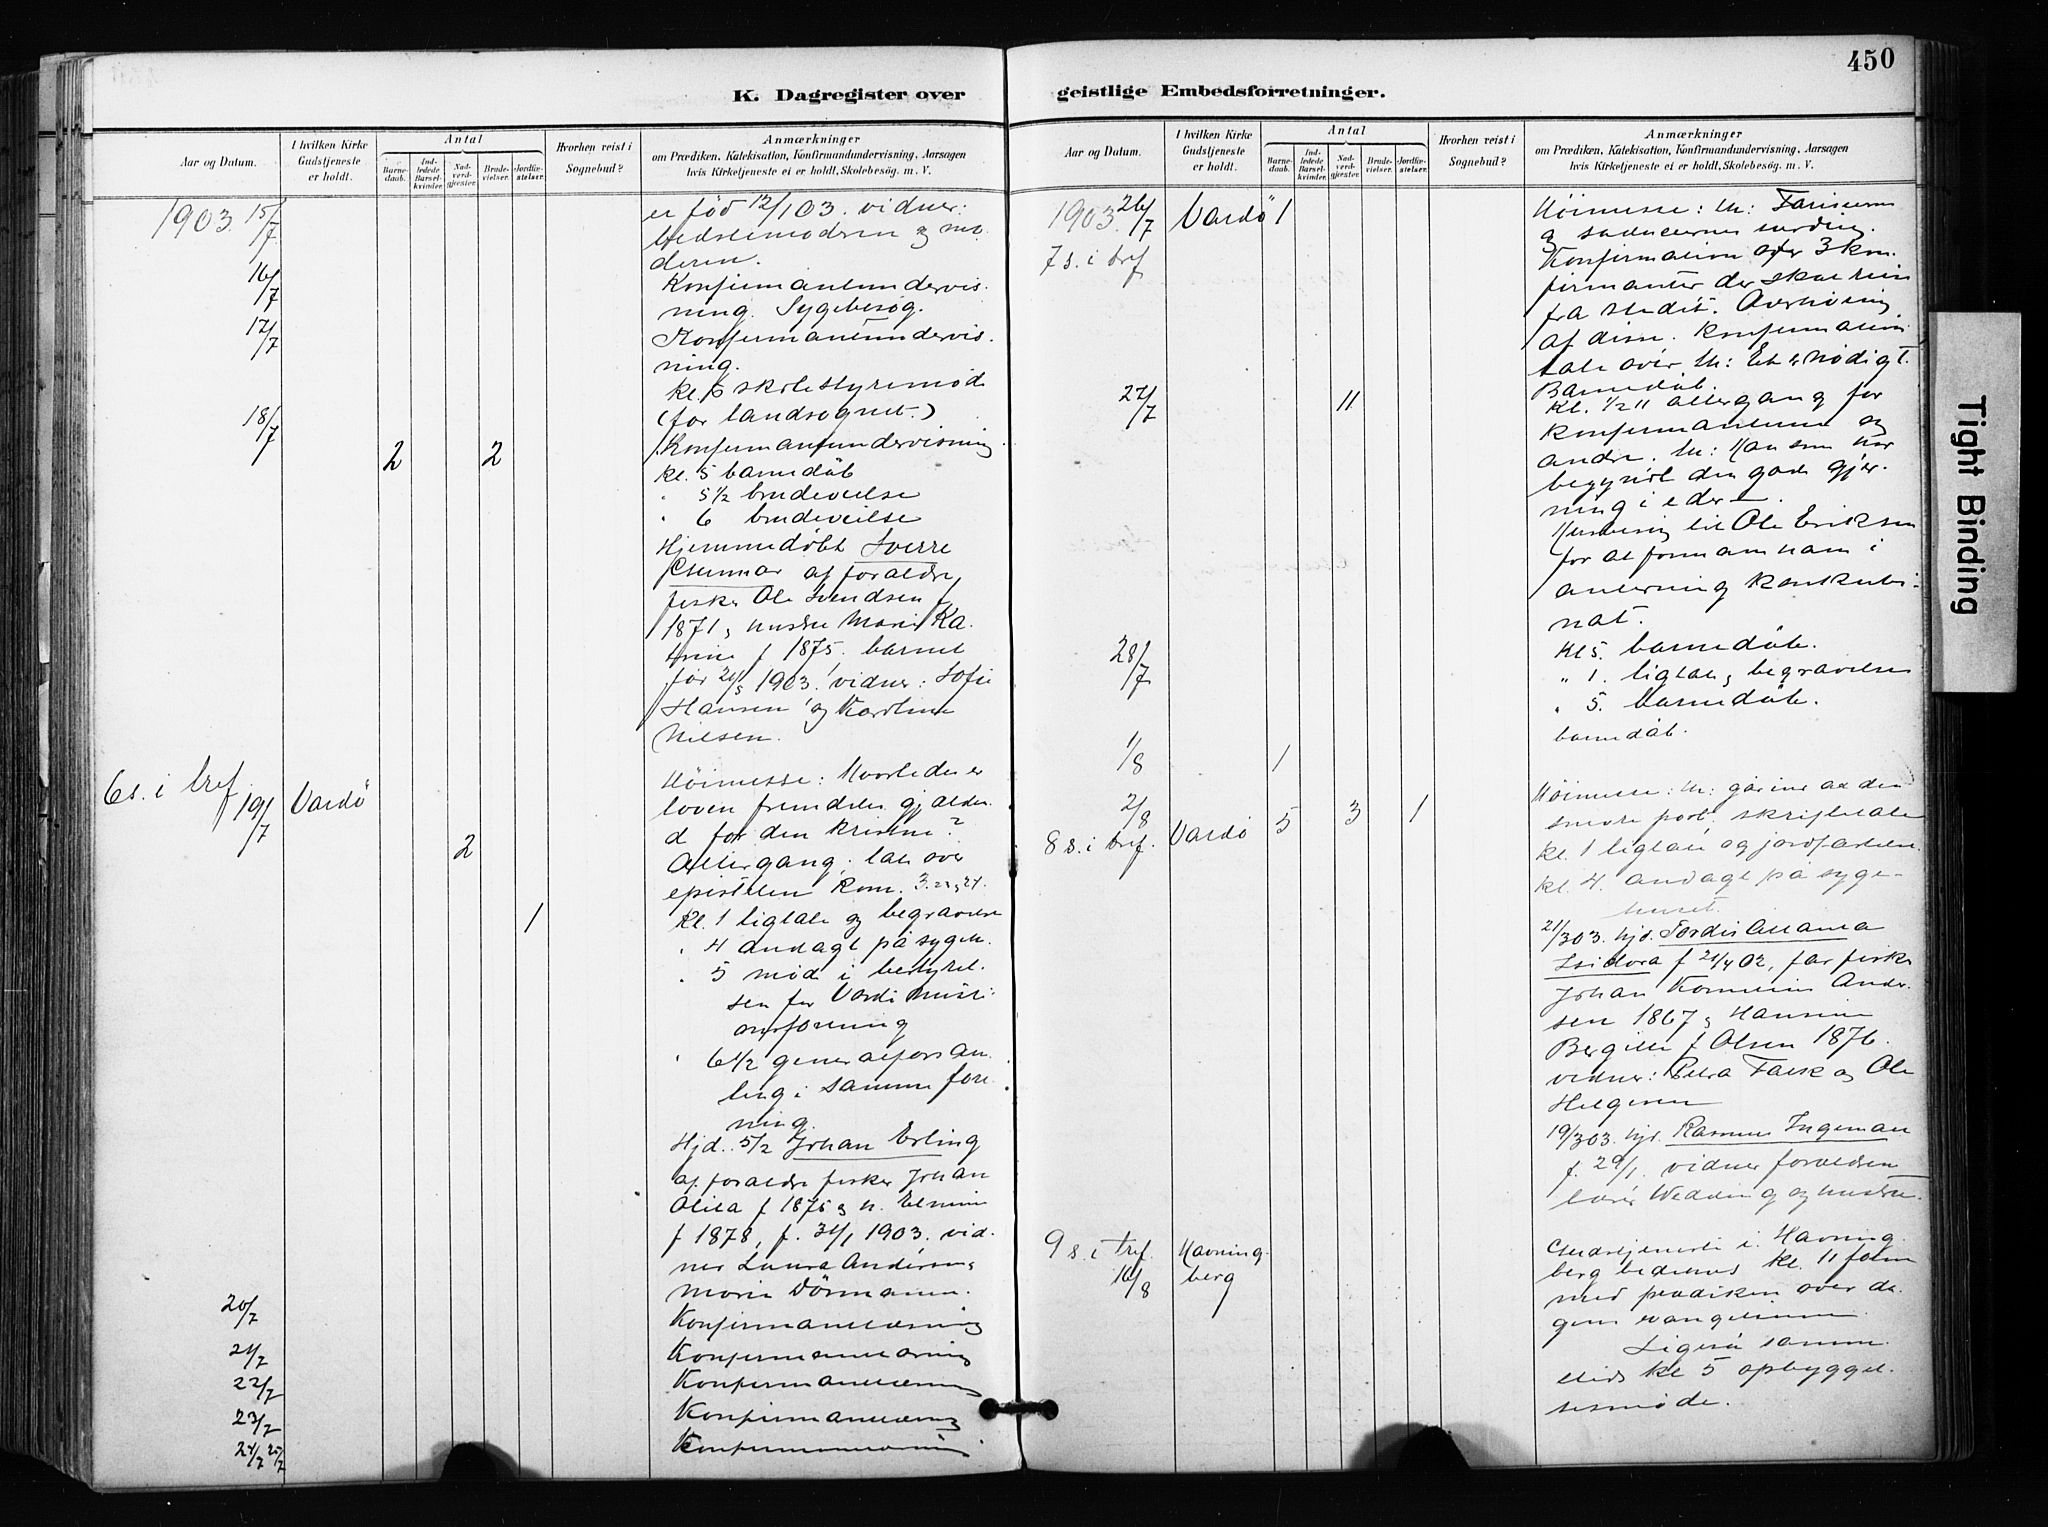 450
K. Dagregister over geistlige Embedsforretninger.
Aar og Datum.
I hvilken Kirke Gudstjeneste er holdt.
Antal
Barnedaab.
Indledede Barselkvinder.
Nadverdgjester.
Brudevielser.
Jordfæstelser.
Hvorhen reist i Sognebud?
Anmærkninger
om Prædiken, Katekisation, Konfirmandundervisning, Aarsagen
hvis Kirketjeneste ei er holdt, Skolebesøg. m. V.
1903 15/7
er fød 12/1 03. vidner:
bedstemodren og mo-
deren.
16/7
Konfirmantundervis-
ning. Sygebesøg.
17/7
Konfirmantundervis-
ning.
kl. 6 skolestyremøde
(for landsognet.)
18/7 2 2
Konfirmantundervisning
kl. 5 barnedåb
" 5 1/2 brudevielse
" 6 brudevielse
Hjemmedøbt Sverre
Gunnar af forældre
fisker Ole Svendsen f
1871 og hustru Marie Ka-
trine f 1875. barnet
før 1903. vidner: Sofie
Hansen og Karoline
Nilsen.
6 s. i tref 19/7 Vardö 2 1
Höimesse: Hvorledes er
loven fremdeles gjælden-
d for den kristne?
Altergang. tale over
epistelen Rom. 3.
Kl. 1 ligtale og begravelse
" 4 andagt på sygeh.
" 5 møde i bestyrel-
sen for Vardö missi-
onsforening
" 6 1/2 generalforsam-
ling i samme fore-
ning.
Hjd. 5/2 Johan Erling
af forældre fisker Johan
f 1875 og h.
f 1878, f. 1903. vid-
ner Laura Andersen og
Marie
20/7
Konfirmantlæsning
21/7
Konfirmantlæsning
22/7
Konfirmantlæsning
23/7
Konfirmantlæsning
24/7 25/7
Konfirmantlæsning
Aar og Datum.
I hvilken Kirke Gudstjeneste er holdt.
Antal
Barnedaab.
Indledede Barselkvinder.
Nadverdgjester.
Brudevielser.
Jordfæstelser.
Hvorhen reist i Sognebud?
Anmærkninger
om Prædiken, Katekisation, Konfirmandundervisning, Aarsagen
hvis Kirketjeneste ei er holdt, Skolebesøg. m. V.
1903 26/7 Vardö 1
7 s. i tref
Höimesse: th: Fariseernes
og saduceernes surdeig.
Konfirmation af 3 kon-
firmanter der skal reise
fra stedet. Overhöring
af disse. Konfirmations
tale over th: Et er nødigt.
Barnedåb.
27/7 11
kl. 1/2 11 altergang for
konfirmanterne og
andre. th: Han som har
begyndt den gode gjer-
ning i eder —.
Husbesøg til Ole Eriksen
for at formane ham i
anledning konkubi-
nat.
Kl 5. barnedåb.
28/7
" 1. ligtale og begravelse
" 5. barnedåb.
1/8 1
barnedåb.
2/8
8 s. i tref. Vardö 5 3 1
Höimesse: th: går ind ad den
snevre port. skriftetale
kl. 1 ligtale og jordfæstelse.
kl. 4. andagt på syge-
huset.
21/3 03. hjd.
Isidora f 21/4 02, far fisker
Johan Ander-
sen 1867 og Hansine
Olsen 1876.
vidner: Petra Falck og Ole
Helgesen
19/3 03. hjd. Rasmus Ingeman
f. 29/1. vidner forældrene
lærer Wedding og hustru.
9 s. i tref. 16/8 Havningberg
Gudstjeneste i Havning-
berg kl. 11 form
med prædiken over da-
gens evangelium
Ligeså samme-
steds kl 5 opbyggel-
sesmøde.
Tight Binding